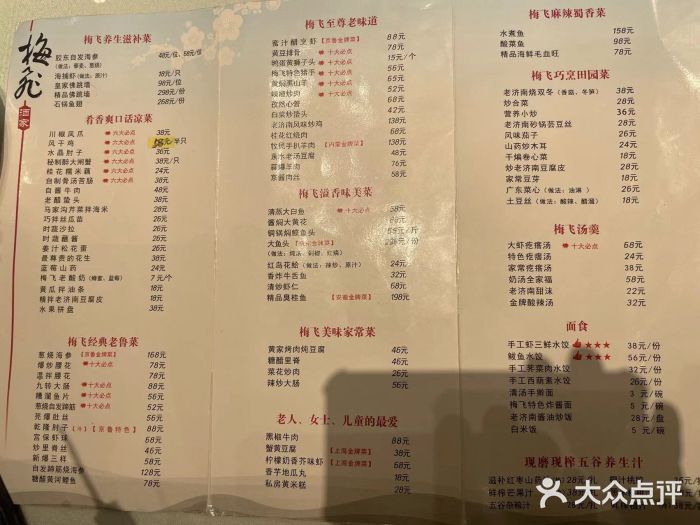 梅飞
酒家
梅飞养生滋补菜
胶东自发海参 48元/位、58元/位
(做法：葱烧)
海捕虾(做法：蒸汁) 18元/只
皇家佛跳墙 98元/位
精品佛跳墙 298元/份
石锅鱼翅 268元/份
肴香爽口话凉菜
川椒凤爪 六大必点 38元
风干鸡 六大必点 元/半只
水晶肘子 六大必点 36元
秘制醉大闸蟹 六大必点 38元/只
桂花糯米藕 六大必点 24元
自制骨汤苦肠 六大必点 38元
白酱牛肉 48元
老醋蛰头 38元
马家沟芹菜拌海米 28元
巧拌丝瓜苗 26元
时蔬沙拉 26元
时蔬蘸酱 26元
姜汁松花蛋 26元
最尊贵的花生 26元
蓝莓山药 24元
梅飞老酸奶(蜂蜜，蓝莓) 7元/个
黄瓜拌油条 18元
精拌老济南豆腐皮 18元
水果拼盘 38元
梅飞经典老鲁菜
葱烧海参【京鲁金牌菜】 168元
爆炒腰花 十大必点 78元
温拌腰花 78元
九转大肠 十大必点 78元
糟溜鱼片 十大必点 56元
葱烧自发蹄筋 十大必点 52元
芫爆肚丝 88元
乾隆肘子【斗】【京鲁特色】 88元
宫保虾球 68元
炒里脊丝 46元
新爆三样 58元
自发蹄筋烧海参 128元
糖醋黄河鲤鱼 78元
梅飞至尊老味道
蜜汁醋烹虾【京鲁金牌菜】 88元
黄豆排骨 十大必点 78元
鸭蛋黄狮子头 十大必点 15元/个
梅飞特色猪手 十大必点
黄焖黑山羊 十大必点
十大必点
孜然心管
白菜炒蛰头
老济南风味炒鸡 138元
桂花红烧肉
牧民手扒羊肉【内蒙金牌菜】 138元
泉水老汤豆腐 48元
蒜爆羊肉 76元
京酱肉丝 56元
梅飞溢香味美菜
清蒸大白鱼 十大必点
酱焖大黄花
铜锅焖鲶鱼头 元/斤
大鱼头 元/份
(做法：炖汤、剁椒、红烧)
红岛花蛤(做法：辣炒、原汁)
香炸牛舌鱼
清炒虾仁 68元
精品臭桂鱼【安徽金牌菜】 198元
梅飞美味家常菜
黄家烤肉炖豆腐 46元
糖醋里脊 46元
菜花炒肉 26元
辣炒大肠 56元
老人、女士、儿童的最爱
黑椒牛肉 88元
蟹黄豆腐【上海金牌菜】 38元
柠檬奶香芥味虾【上海金牌菜】 68元
香芋地瓜丸 38元
私房黄米糕 28元
梅飞麻辣蜀香菜
水煮鱼 158元
酸菜鱼 98元
精品海鲜毛血旺 78元
梅飞巧烹田园菜
老济南烧双冬(香菇、冬笋) 38元
炒合菜 28元
营养小炒 36元
老济南砂锅芸豆丝 28元
风味茄子 28元
山药炒木耳 24元
干煸卷心菜 18元
炒老济南豆腐皮 28元
家常豆芽 18元
广东菜心(做法：油淋) 26元
土豆丝(做法：酸辣、醋溜) 18元
梅飞汤羹
大虾疙瘩汤 十大必点 68元
特色疙瘩汤 28元
家常疙瘩汤 38元
奶汤全家福 58元
老济南甜沫 22元
金牌酸辣汤 32元
面食
手工虾三鲜水饺 ★★★ 38元/份
鲅鱼水饺 ★★★ 56元/份
手工荠菜肉水饺 32元/份
手工西葫素水饺 26元/份
清汤手擀面 3元/碗
梅飞特色炸酱面 5元/碗
老济南酱油炒饭 28元/份
白米饭 5元/份
现磨现榨五谷养生汁
滋补红枣山药 28元/扎
鲜榨芒果汁
五谷杂粮汁
大众点评